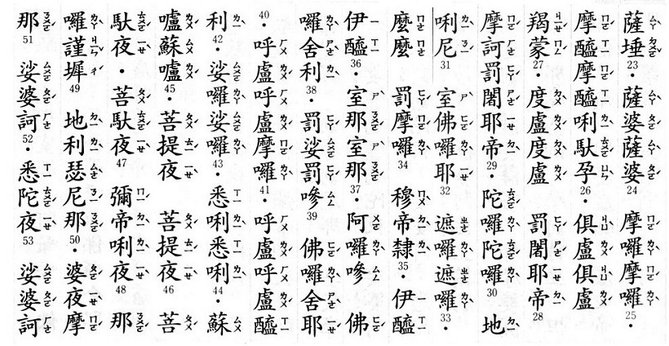 薩埵23·薩婆薩婆24 摩囉摩囉25·
摩醯摩醯唎馱孕26·俱盧俱盧
羯蒙27·度盧度盧 罰闍耶帝28
摩訶罰闍耶帝29·陀囉陀囉30·地
唎尼31 室佛囉耶32 遮囉遮囉33·
麼麼 罰摩囉34 穆帝隸35·伊醯
伊醯36·室那室那37·阿囉嘇·佛
囉舍利38·罰娑罰嘇39 佛囉舍耶
40·呼盧呼盧摩囉41·呼盧呼盧醯
利42·娑囉娑囉43·悉唎悉唎44·蘇
嚧蘇嚧45·菩提夜 菩提夜46 菩
馱夜·菩馱夜47 彌帝唎夜48 那
囉謹墀49 地利瑟尼那50·婆夜摩
那51 娑婆訶52·悉陀夜53 娑婆訶